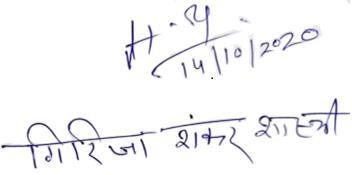 14/10/2020
गिरिजा शंकर शास्त्री